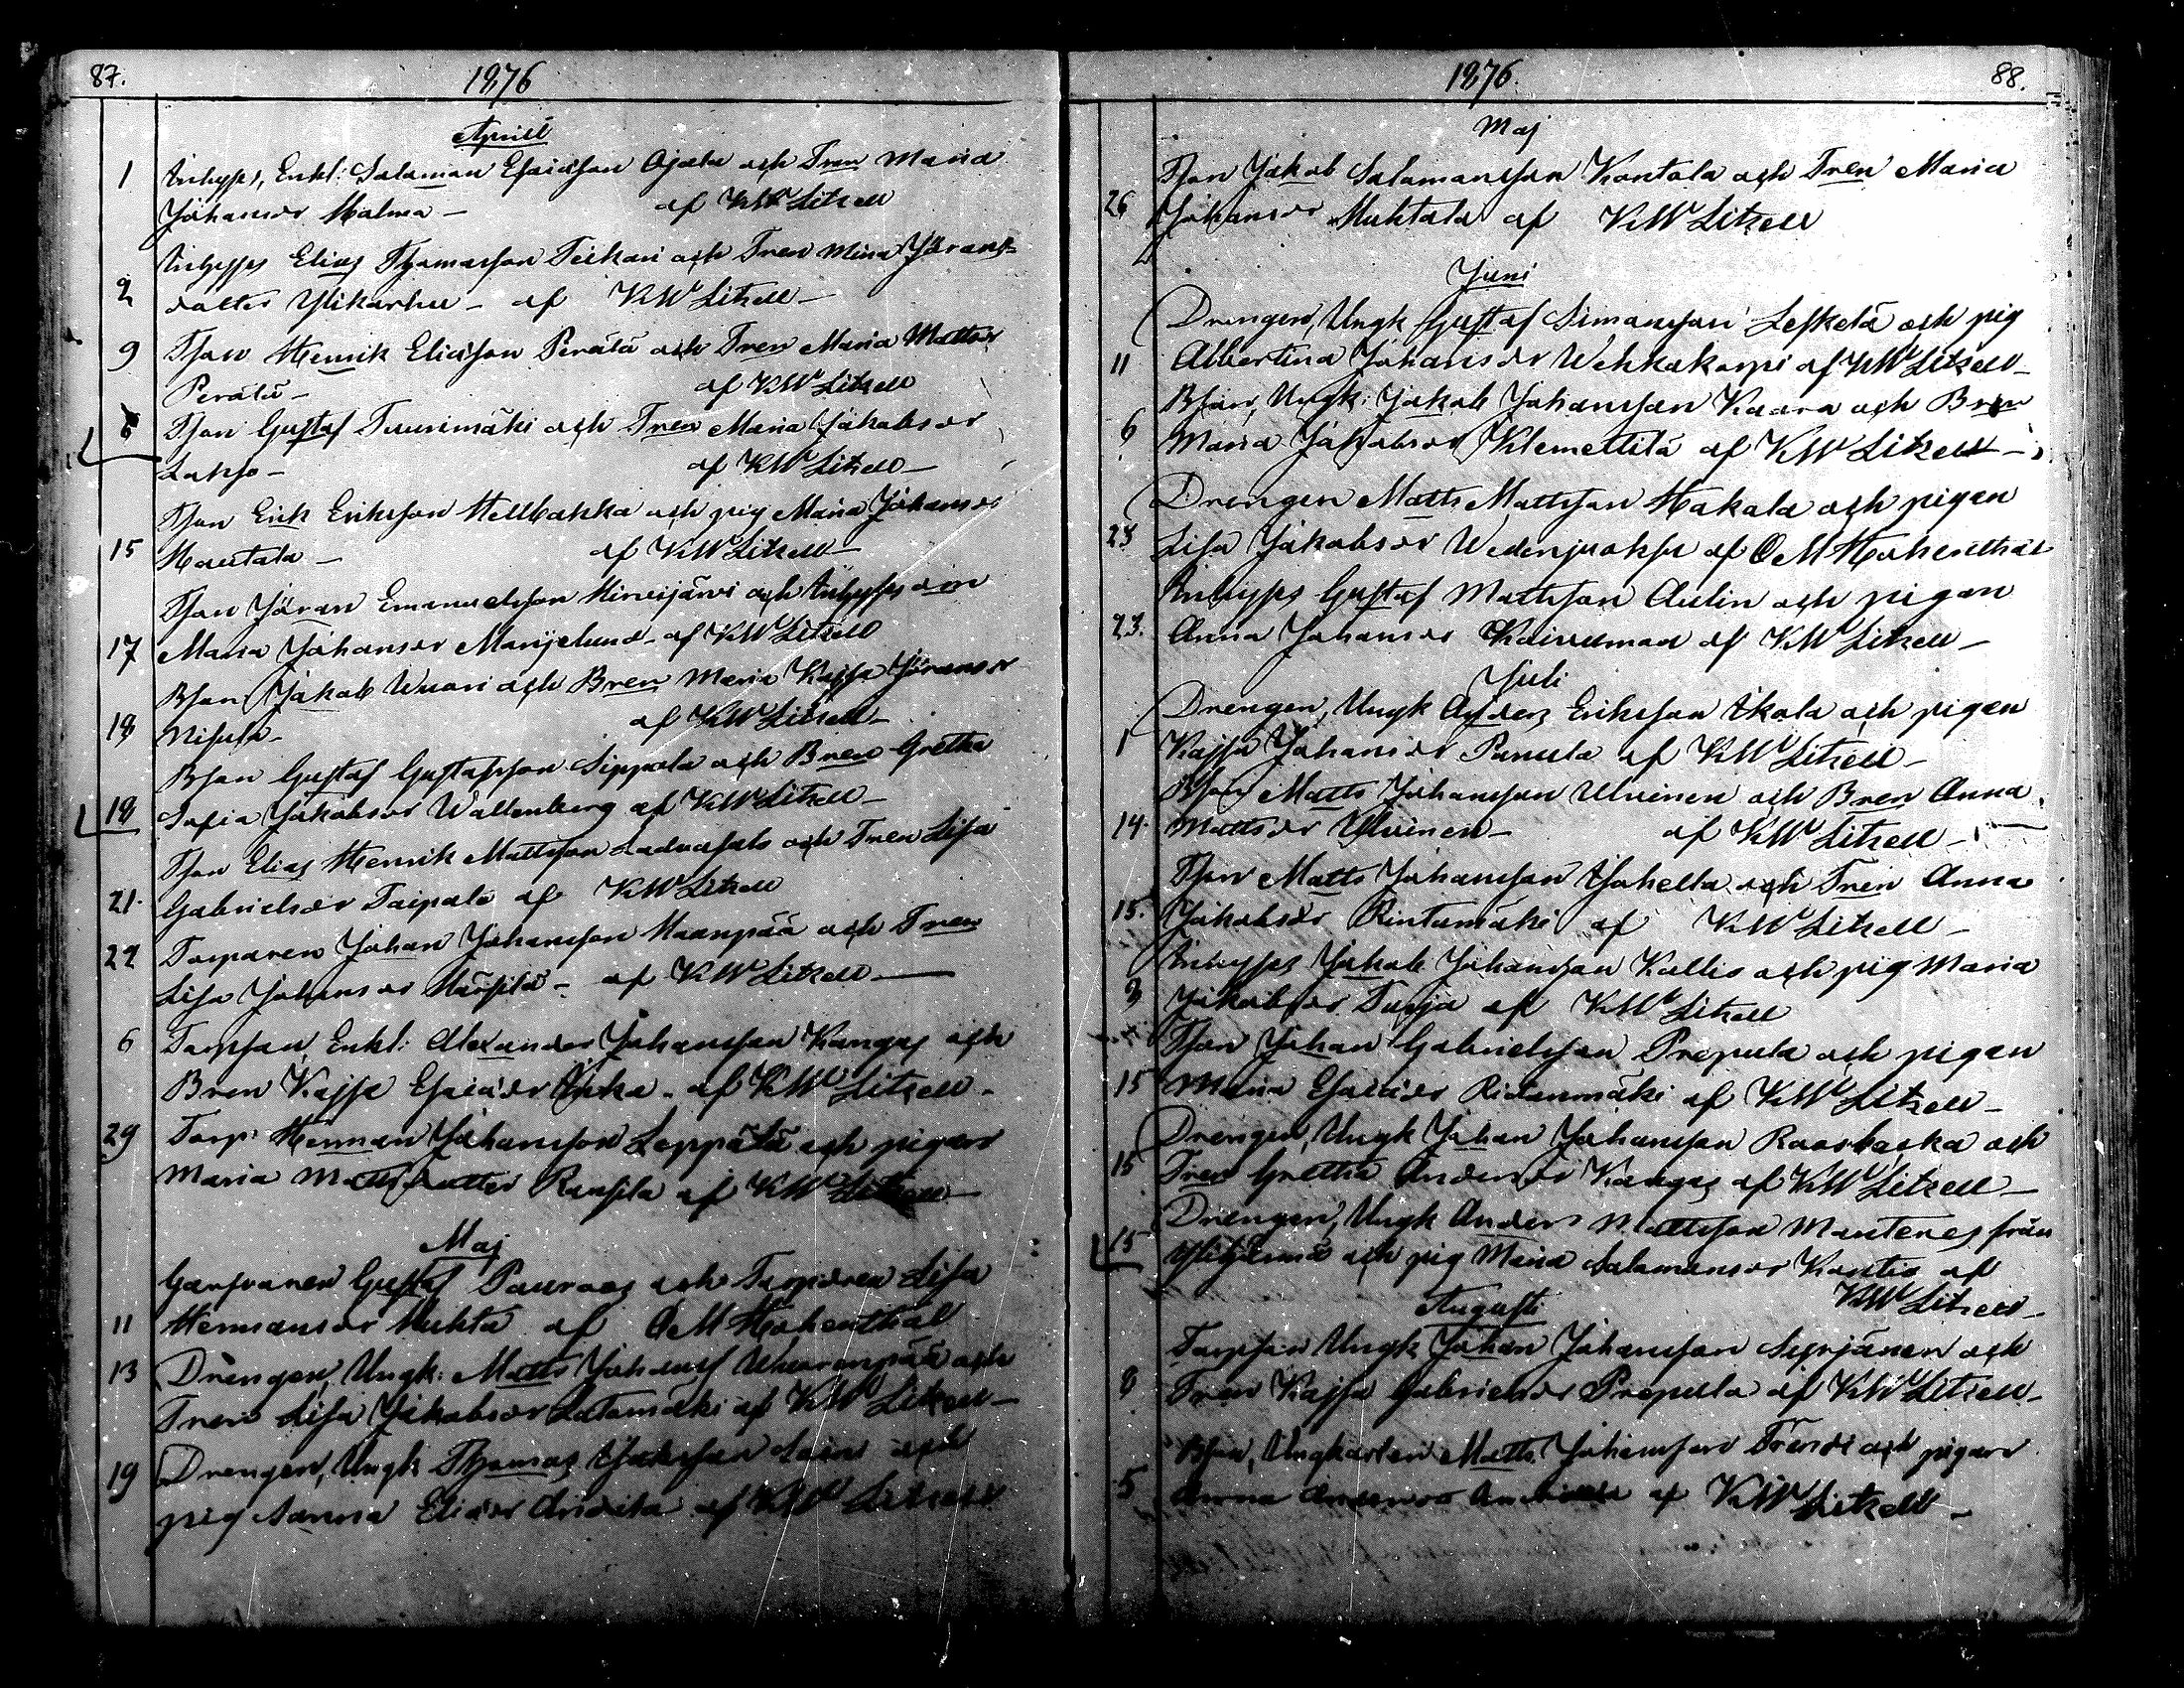 87. 1876
Aprill
1 Inhyses, Enkl: Salomon Esaiasson Ojala och Tren Maria
Johansdr Malma – af KW Litzell
Inhyses Elias Thomasson Teikari och Tren Mina Jörans-
2 dotter Ylikarhu – af KW Litzell –
9 Tson Henrik Eliasson Perälä och Tren Maria Mattsdr
Perälä – af KW Litzell
8 Tson Gustaf Tuurimäki och Tren Maria Jakobsdr
Lakso – af KW Litzell –
Tson Erik Eriksson Hellbakka och pig Maria Johansdr
15 Hautala – af KW Litzell –
Tson Jöran Emanuelsson Hirvijärvi och Inhyses don
17 Maria Johansdr Marjelund – af KW Litzell
Bson Jakob Wuori och Bren Maria Kajsa Jöransdr
18 Nisula – af KW Litzell –
Bson Gustaf Gustafsson Sippola och Bren Gretha
18 Sofia Jakobsdr Wallenberg af KW Litzell –
Tson Elias Henrik Mattsson och Tren Lisa
21. Gabrielsdr Taipale af KW Litzell
22 Torparen Johan Johansson Haanpää och Tren
Lisa Johansdr – af KW Litzell –
6 Torpson, Enkl: Alexander Johansson Kangas och
Bren Kajsa Esaiædr – af KW Litzell –
29 Torp: Herman Johansson Leppälä och pigan
Maria Mattsdotter af KW Litzell –
Maj
Garfvaren Gustaf och Torpdren Lisa
11 Hermansdr Muhta af O M Hohenthal
13 Drengen, Ungk: Matts Johansf och
Tren Lisa Jakobsdr Latomäki af KW Litzell –
19 Drengen, Ungk Thomas Saari och
pig Sanna Eliædr af KW Litzell
1876. 88.
Maj
Tson Jakob Salomonsson Kontola och Tren Maria
26 Johansdr Muhtala af KW Litzell
Juni
Drengen, Ungk Gustaf Simonsson Leskelä och pig
11 Albertina Johansdr Wehkakorpi af KW Litzell –
Bson, Ungk: Jakob Johansson Kaara och Bren
6 Maria Jakobsdr Klemettilä af KW Litzell –
Drengen Matts Mattsson Hakala och pigan
23 Lisa Jakobsdr af O M Hohenthal
Inhyses Gustaf Mattsson Aulin och pigan
23. Anna Johansdr Kaivumaa af KW Litzell –
Juli
Drengen, Ungk Anders Eriksson Ikola och pigan
1 Kajsa Johansdr Panula af KW Litzell –
Bson Matts Johansson Ulvinen och Bren Anna
14. Mattsdr Ulvinen – af KW Litzell –
Tson Matts Johansson och Tren Anna
15. Jakobsdr Rintamäki af KW Litzell –
Inhyses Jakob Johansson Kallio och pig Maria
3 Jakobsdr Turja af KW Litzell
Tson Johan Gabrielsson Prepula och pigan
15 Maria Esaiædr Ridanmäki af KW Litzell –
Drengen, Ungk Johan Johansson och
15 Tren Gretha Andersdr Kangas af KW Litzell –
Drengen, Ungk Anders Mattsson från
15 Ylihärmä och pig Maria Salomonsdr Kontio af
KW Litzell –
Augusti
Torpson Ungk Johan Johansson Syrjänen och
8 Tren Kajsa Gabrielsdr Prepula af KW Litzell –
Bson, Ungkarlen Matts Johansson och pigan
5 Anna Andersdr af KW Litzell –